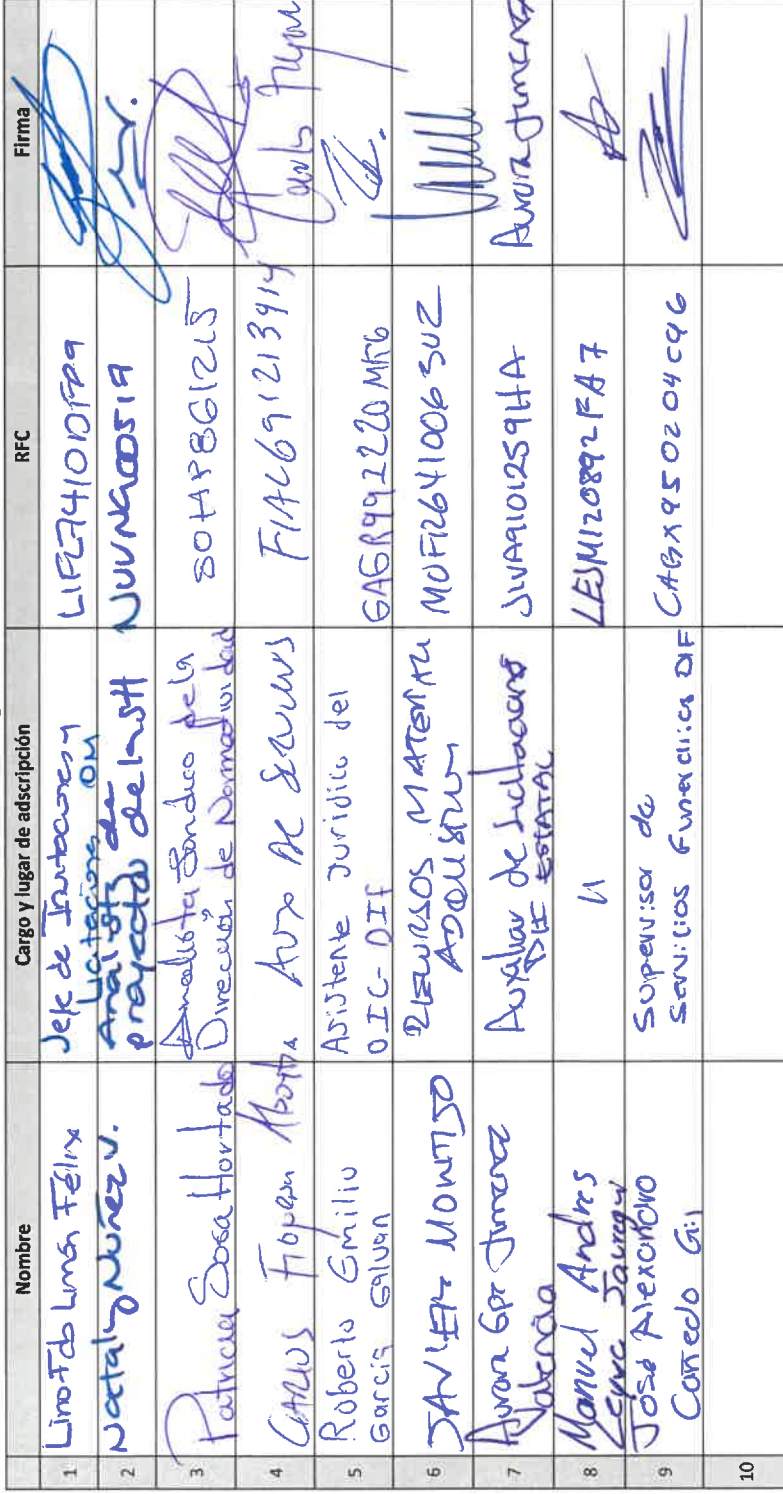 Nombre Cargo y lugar de adscripción RFC Firma
1 Lino Fdo Limón Félix Jefe de Licitaciones OM
2 Nataly Nuñez V. Analista de proyectos de la SH
3 Patricia Sosa Hurtado Analista Jurídico de la Dirección de Normatividad SOHP861215
4 Carlos Aux de FIAL691213914
5 Roberto Emilio García Galván Asistente Jurídico del OIC-DIF GAGR991220MF6
6 JAVIER MONTIJO RECURSOS MATERIALES
7 Aurora Gpe Jimenez Valencia Auxiliar de Licitaciones DIF ESTATAL JIVA9101259HA Aurora Jimenez
8 Manuel Andres Leyva Jauregui 11 LEJM120892FA7
9 José Alexandro Cañedo Gil Supervisor de Servicios Funerarios DIF CAGX950204C96
10